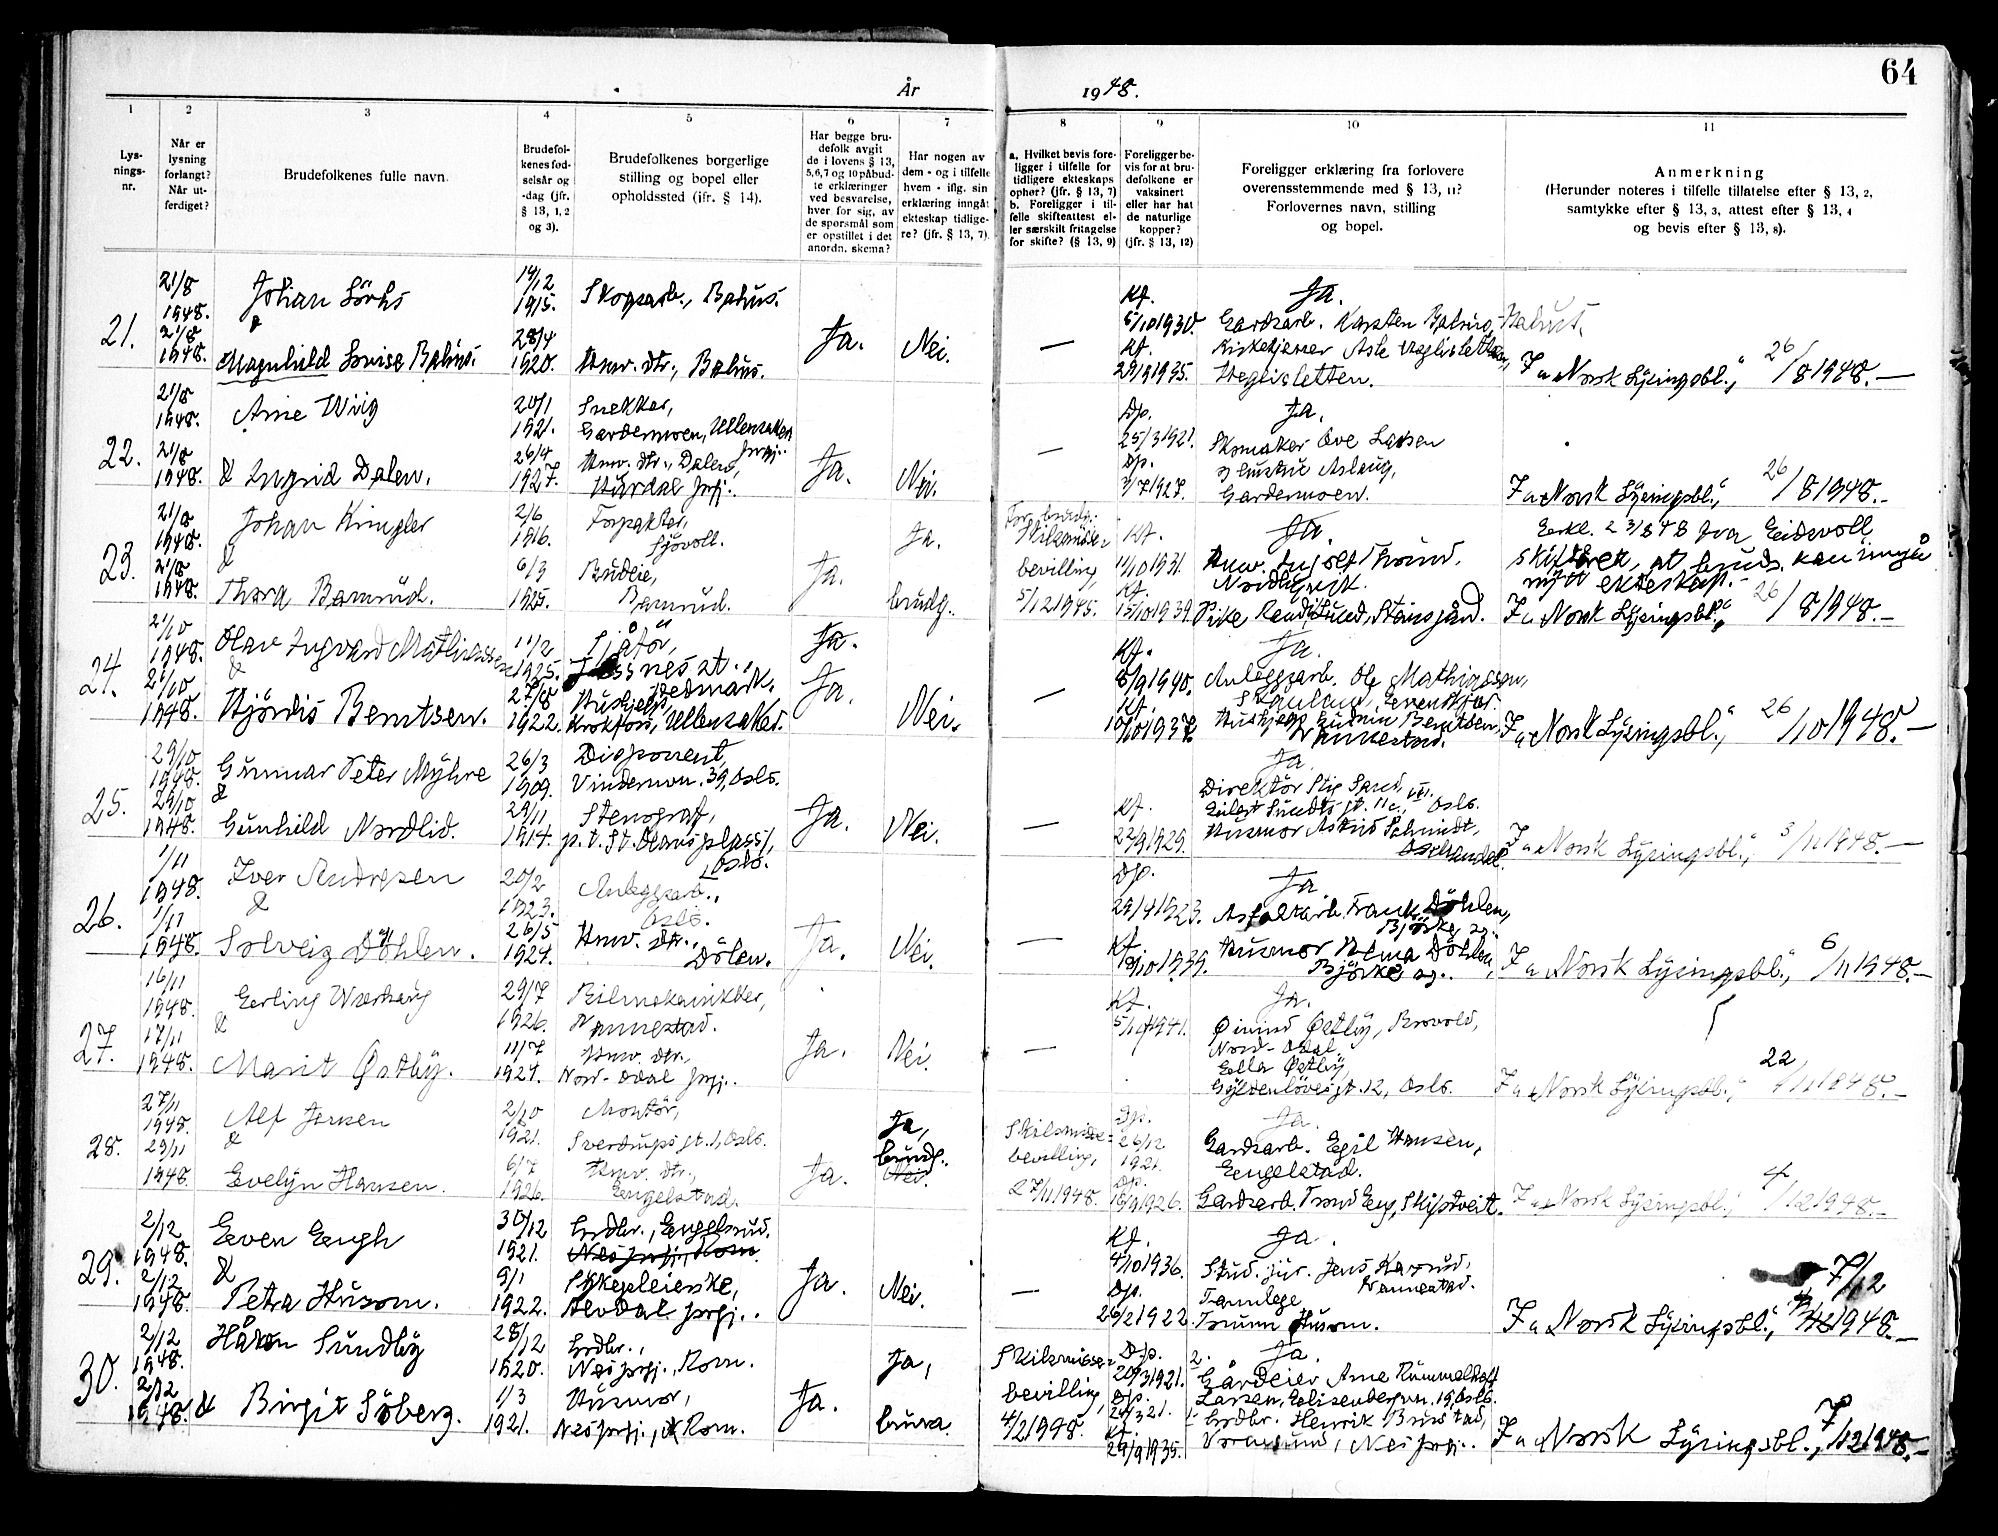 64
År 1948.
1 2 3 4 5 6 7 8 9 10 11
Lysnings-nr.
Når er lysning forlangt? Når utferdiget?
Brudefolkenes fulle navn.
Brudefolkenes fødselsår og -dag (jfr. § 13, 1, 2 og 3).
Brudefolkenes borgerlige stilling og bopel eller opholdssted (jfr. § 14).
Har begge brudefolk avgit de i lovens § 13, 5, 6, 7 og 10 påbudte erklæringer ved besvarelse, hver for sig, av de spørsmål som er opstillet i det anordn. skema?
Har nogen av dem - og i tilfelle hvem - iflg. sin erklæring inngåt ekteskap tidligere? (jfr. § 13, 7).
a. Hvilket bevis foreligger i tilfelle for tidligere ekteskaps ophør? (jfr. § 13, 7) b. Foreligger i tilfelle skifteattest eller særskilt fritagelse for skifte? (§ 13, 9)
Foreligger bevis for at brudefolkene er vaksinert eller har hat de naturlige kopper? (jfr. § 13, 12)
Foreligger erklæring fra forlovere overensstemmende med § 13, 11? Forlovernes navn, stilling og bopel.
Anmerkning (Herunder noteres i tilfelle tillatelse efter § 13, 2, samtykke efter § 13, 3, attest efter § 13, 4 og bevis efter § 13, 8).
21.
21/8 1948.
Johan
14/12 1915.
Skogsarb., Bahus.
&
21/8 1948.
Magnhild Lovise Bahus.
28/4 1920.
Hmv. dtr., Bahus.
Ja.
Nei.
—
Kf. 5/10 1930.
Kf. 1935.
Ja.
Gardsarb. Karsten
Kirketjener Asle
Heglisletten.
I "Norsk Lysingsbl.", 26/8 1948. —
22.
21/8 1948.
Arne Wiig
20/1 1921.
Snekker,
Gardermoen, Ullensaker prgj.
21/8 1948.
& Ingrid Dalen.
26/4 1927.
Hmv. dtr., Dalen,
Hurdal prgj.
Ja.
Nei.
—
Dp. 25/3 1921.
Dp. 3/7 1927.
Ja.
Skomaker Ove Larsen
og hustru Aslaug,
Gardermoen.
I "Norsk Lysingsbl.", 26/8 1948. —
23.
21/8 1948.
Johan Kingler
2/6 1916.
Forpakter,
&
21/8 1948.
Thora Bamrud.
6/3 1925.
Budeie,
Bamrud.
Ja.
Ja.
brudg.
For brudg.:
Skilsmisse=
bevilling,
5/12 1945.
Kf. 11/10 1931.
Kf. 15/10 1939.
Ja.
Erkl. 23/8 48 fra Eidsvoll
skifterett, at brudg. kan inngå
nytt ekteskap. —
I "Norsk Lysingsbl.", 26/8 1948. —
24.
21/10 1948.
Olav Ingvard Mathisen
&
11/2 1925.
Sjåfør,
Hedmark.
21/10 1948.
Hjördis Berntsen.
27/8 1922.
Hushjelp,
Ullensaker.
Ja.
Ja.
Nei.
—
Kf. 8/9 1940.
Kf. 1937.
Ja.
Anleggsarb. Ole Mathisen,
I "Norsk Lysingsbl.", 26/10 1948. —
25.
29/10 1948.
Gunnar Peter Myhre
26/3 1909.
Disponent,
Vindernvn. 39, Oslo.
&
29/10 1948.
Gunhild Nordlid.
29/11 1914.
Stenograf,
p.t. St. Olavs plass 1, Oslo.
Ja.
Nei.
—
Kf. 22/9 1929.
Ja.
Direktør Stig
Eilert Sundts gt. 11c, VII. Oslo.
Husmor Astrid Schmidt,
I "Norsk Lysingsbl.", 3/11 1948. —
26.
1/11 1948.
Iver Andresen
&
20/2 1923.
Anleggsarb.,
Oslo.
1/11 1948.
Solveig Döhlen.
26/5 1924.
Hmv. dtr.,
Dölen.
Ja.
Nei.
—
Dp. 29/4 1923.
Kf. 1939.
Ja
Asfaltarb. Frank Döhlen,
Husmor Döhlen,
I "Norsk Lysingsbl.", 6/11 1948. —
27.
16/11 1948.
Erling Wærhaug
&
29/7 1926.
Bilmekaniker,
Nannestad.
17/11 1948.
Marit Østby.
11/7 1924.
Hmv. dtr.,
Nord-Odal prgj.
Ja.
Nei.
—
Kf. 5/10 1941.
Ja.
Øivind Østby, Brovold,
Nord-Odal
Ella Østby,
Gyldenløves gt. 12, Oslo.
I "Norsk Lysingsbl.", 22/11 1948. —
28.
27/11 1948.
Alf Jensen
&
2/10 1921.
Montør,
Sverdrups gt. 1, Oslo.
29/11 1948.
Evelyn Hansen.
6/7 1926.
Hmv. dtr.,
Engelstad.
Ja.
Ja,
brudg.
Nei.
Skilsmisse=
bevilling,
27/11 1948.
Dp. 26/12 1921.
Dp. 1926.
Ja.
Gardsarb. Egil Hansen,
Engelstad.
Gardsarb. Trond Eng, Skiptveit.
I "Norsk Lysingsbl.", 4/12 1948. —
29.
2/12 1948.
Even Eengh
&
30/12 1921.
Grdbr., Engelsrud.
Nes prgj., Rom.
2/12 1948.
Petra Husom.
9/1 1922.
Sykepleierske,
Alvdal prgj.
Ja.
Nei.
—
Kf. 4/10 1936.
Dp. 26/2 1922.
Ja.
Stud. jur. Jens
Nannestad.
Tannlege
Husom.
I "Norsk Lysingsbl.", 7/12 1948. —
30.
2/12 1948.
Håkon Sundby
28/12 1920.
Grdbr.,
Nes prgj., Rom.
2/12 1948.
& Birgit Söberg.
1/3 1921.
Husmor,
Nes prgj., Rom.
Ja.
Ja,
brura.
Skilsmisse=
bevilling,
4/2 1948.
Dp. 20/3 1921.
Dp. 24/3 21.
Kf. 29/9 1935.
Ja.
2. Gårdeier Arne Rummelhoff
Larsen, 19, Oslo.
1. Grdbr. Henrik
Vormsund, Nes prgj.
I "Norsk Lysingsbl.", 7/12 1948. —